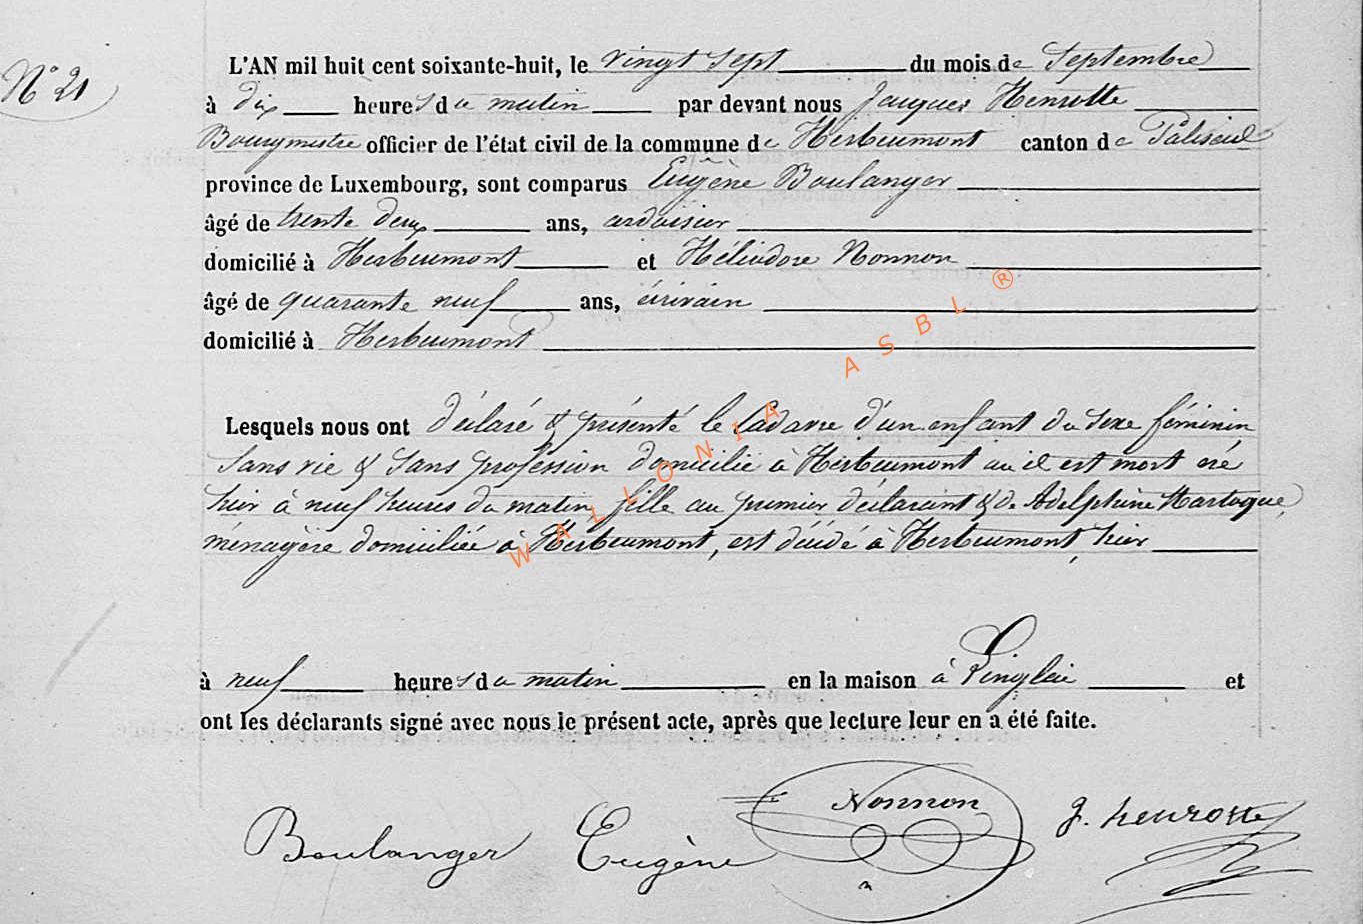 N° 21
L'AN mil huit cent soixante-huit, le vingt sept du mois de Septembre
à dix heures du matin par devant nous Jacques Henrotte
Bourgmestre officier de l'état civil de la commune de Herbeumont canton de Paliseul
province de Luxembourg, sont comparus Eugène Boulanger
âgé de trente deux ans, ardoisier
domicilié à Herbeumont et Héliodore Nonnon
âgé de quarante neuf ans, écrivain
domicilié à Herbeumont
Lesquels nous ont déclaré & présenté le Cadavre d'un enfant du sexe féminin
sans vie & sans profession domicilié à Herbeumont où il est mort né
hier à neuf heures du matin, fille au premier déclarant & de Adelphine Martoque,
ménagère domiciliée à Herbeumont, est décédé à Herbeumont, hier
à neuf heures du matin en la maison à et
ont les déclarants signé avec nous le présent acte, après que lecture leur en a été faite.
Boulanger Eugène Nonnon J. Henrotte
WALLONIA ASBL ®